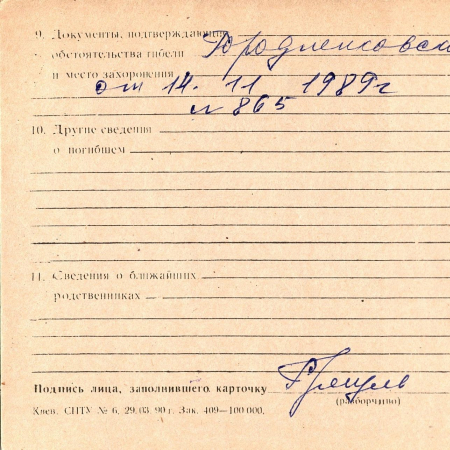 9. Документы, подтверждающие
обстоятельства гибели
и место захоронения
от 14. 11 1989г
№ 865
10. Другие сведения
о погибшем
11. Сведения о ближайших
родственниках
Подпись лица, заполнившего карточку
(разборчиво)
Киев. СПТУ № 6, 29. 03. 90 г. Зак. 409—100 000.